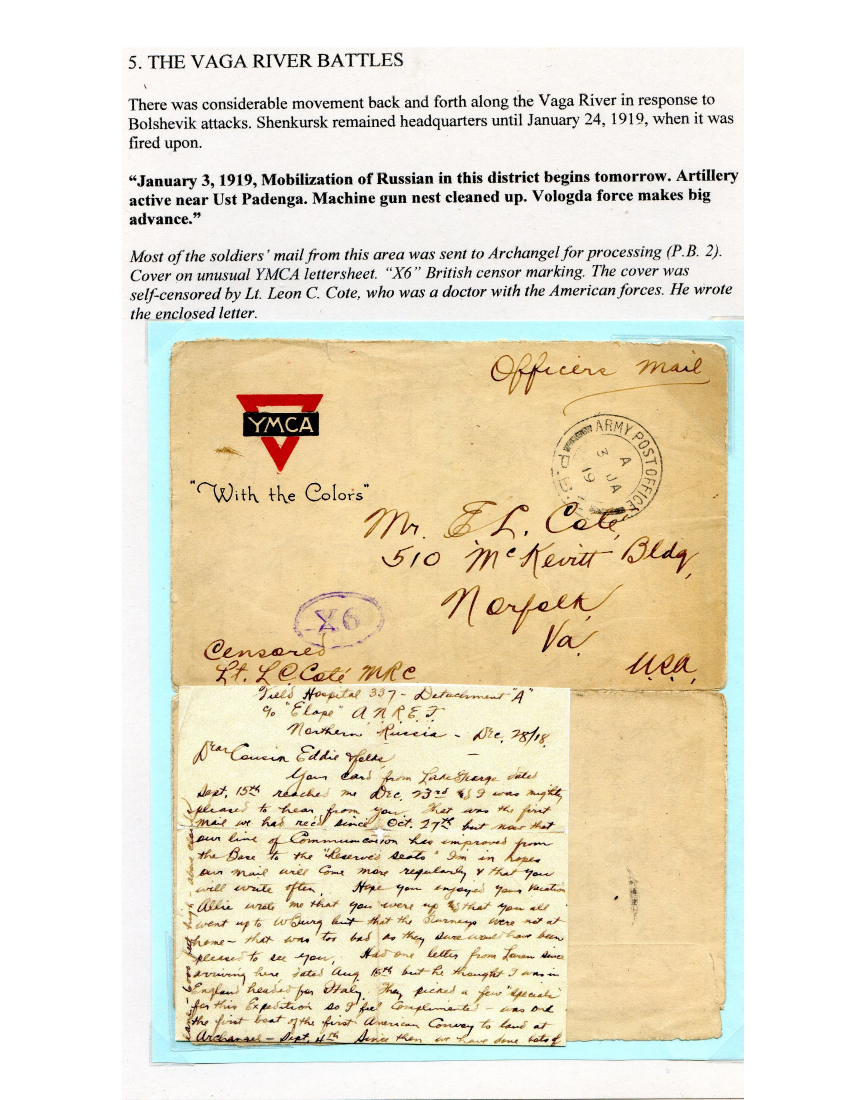 5. THE VAGA RIVER BATTLES
There was considerable movement back and forth along the Vaga River in response to
Bolshevik attacks. Shenkursk remained headquarters until January 24, 1919, when it was
fired upon.
“January 3, 1919, Mobilization of Russian in this district begins tomorrow. Artillery
active near Ust Padenga. Machine gun nest cleaned up. Vologda force makes big
advance.”
Most of the soldiers’ mail from this area was sent to Archangel for processing (P.B. 2).
Cover on unusual YMCA lettersheet. “X6” British censor marking. The cover was
self-censored by Lt. Leon C. Cote, who was a doctor with the American forces. He wrote
the enclosed letter.
Officers Mail
YMCA
"With the Colors"
ARMY POST OFFICE
A
3 JA
19
P.B.
Mr. E L. Coté
510 McKevitt Bldg,
Norfolk
Va.
U.S.A.
X6
Censored
Lt. L C. Coté MRC
Field Hospital 337 - Detachment "A"
c/o "Elope" A.N.R.E.F.
Northern Russia - Dec. 28/18.
Dear Cousin Eddie & folks,
Your card from Lake George dated
Sept. 15th reached me Dec. 23rd & I was mighty
pleased to hear from you. That was the first
mail we had rec'd since Oct. 27th but now that
our line of Communication has improved from
the Base to the "Reserved seats" I'm in hopes
our mail will come more regularly & that you
will write often. Hope you enjoyed your vacation
Allie wrote me that you were up & that you all
went up to but that the were not at
home - that was too bad as they sure would have been
pleased to see you. Had one letter from Loren since
arriving here dated Aug. 15th but he thought I was in
England headed for Italy. They picked a few "specials"
for this Expedition so I feel complimented - was on
the first boat of the first American Convoy to land at
Archangel - Sept. 4th Since then we have done lots of